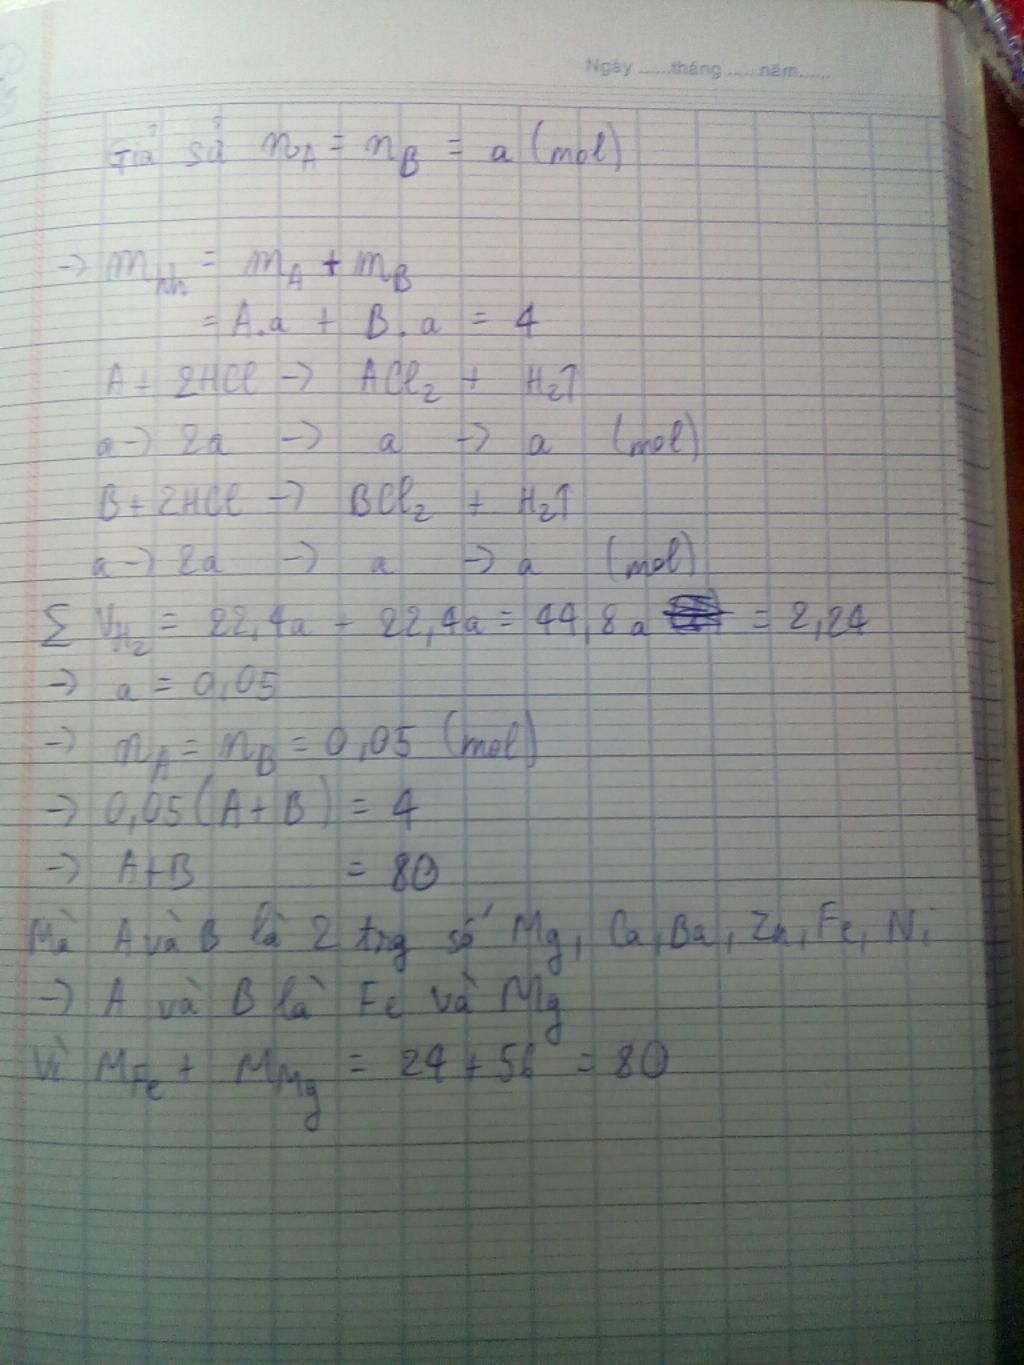 Ngày ......tháng ......năm......
Giả sử n_A = n_B = a (mol)
-> m_hh = m_A + m_B
= A.a + B.a = 4
A + 2HCl -> ACl₂ + H₂↑
a -> 2a -> a -> a (mol)
B + 2HCl -> BCl₂ + H₂↑
a -> 2a -> a -> a (mol)
Σ V_H₂ = 22,4a + 22,4a = 44,8a = 2,24
-> a = 0,05
-> n_A = n_B = 0,05 (mol)
-> 0,05(A+B) = 4
-> A+B = 80
Mà A và B là 2 trg số Mg, Ca, Ba, Zn, Fe, Ni
-> A và B là Fe và Mg
Vì M_Fe + M_Mg = 24 + 56 = 80